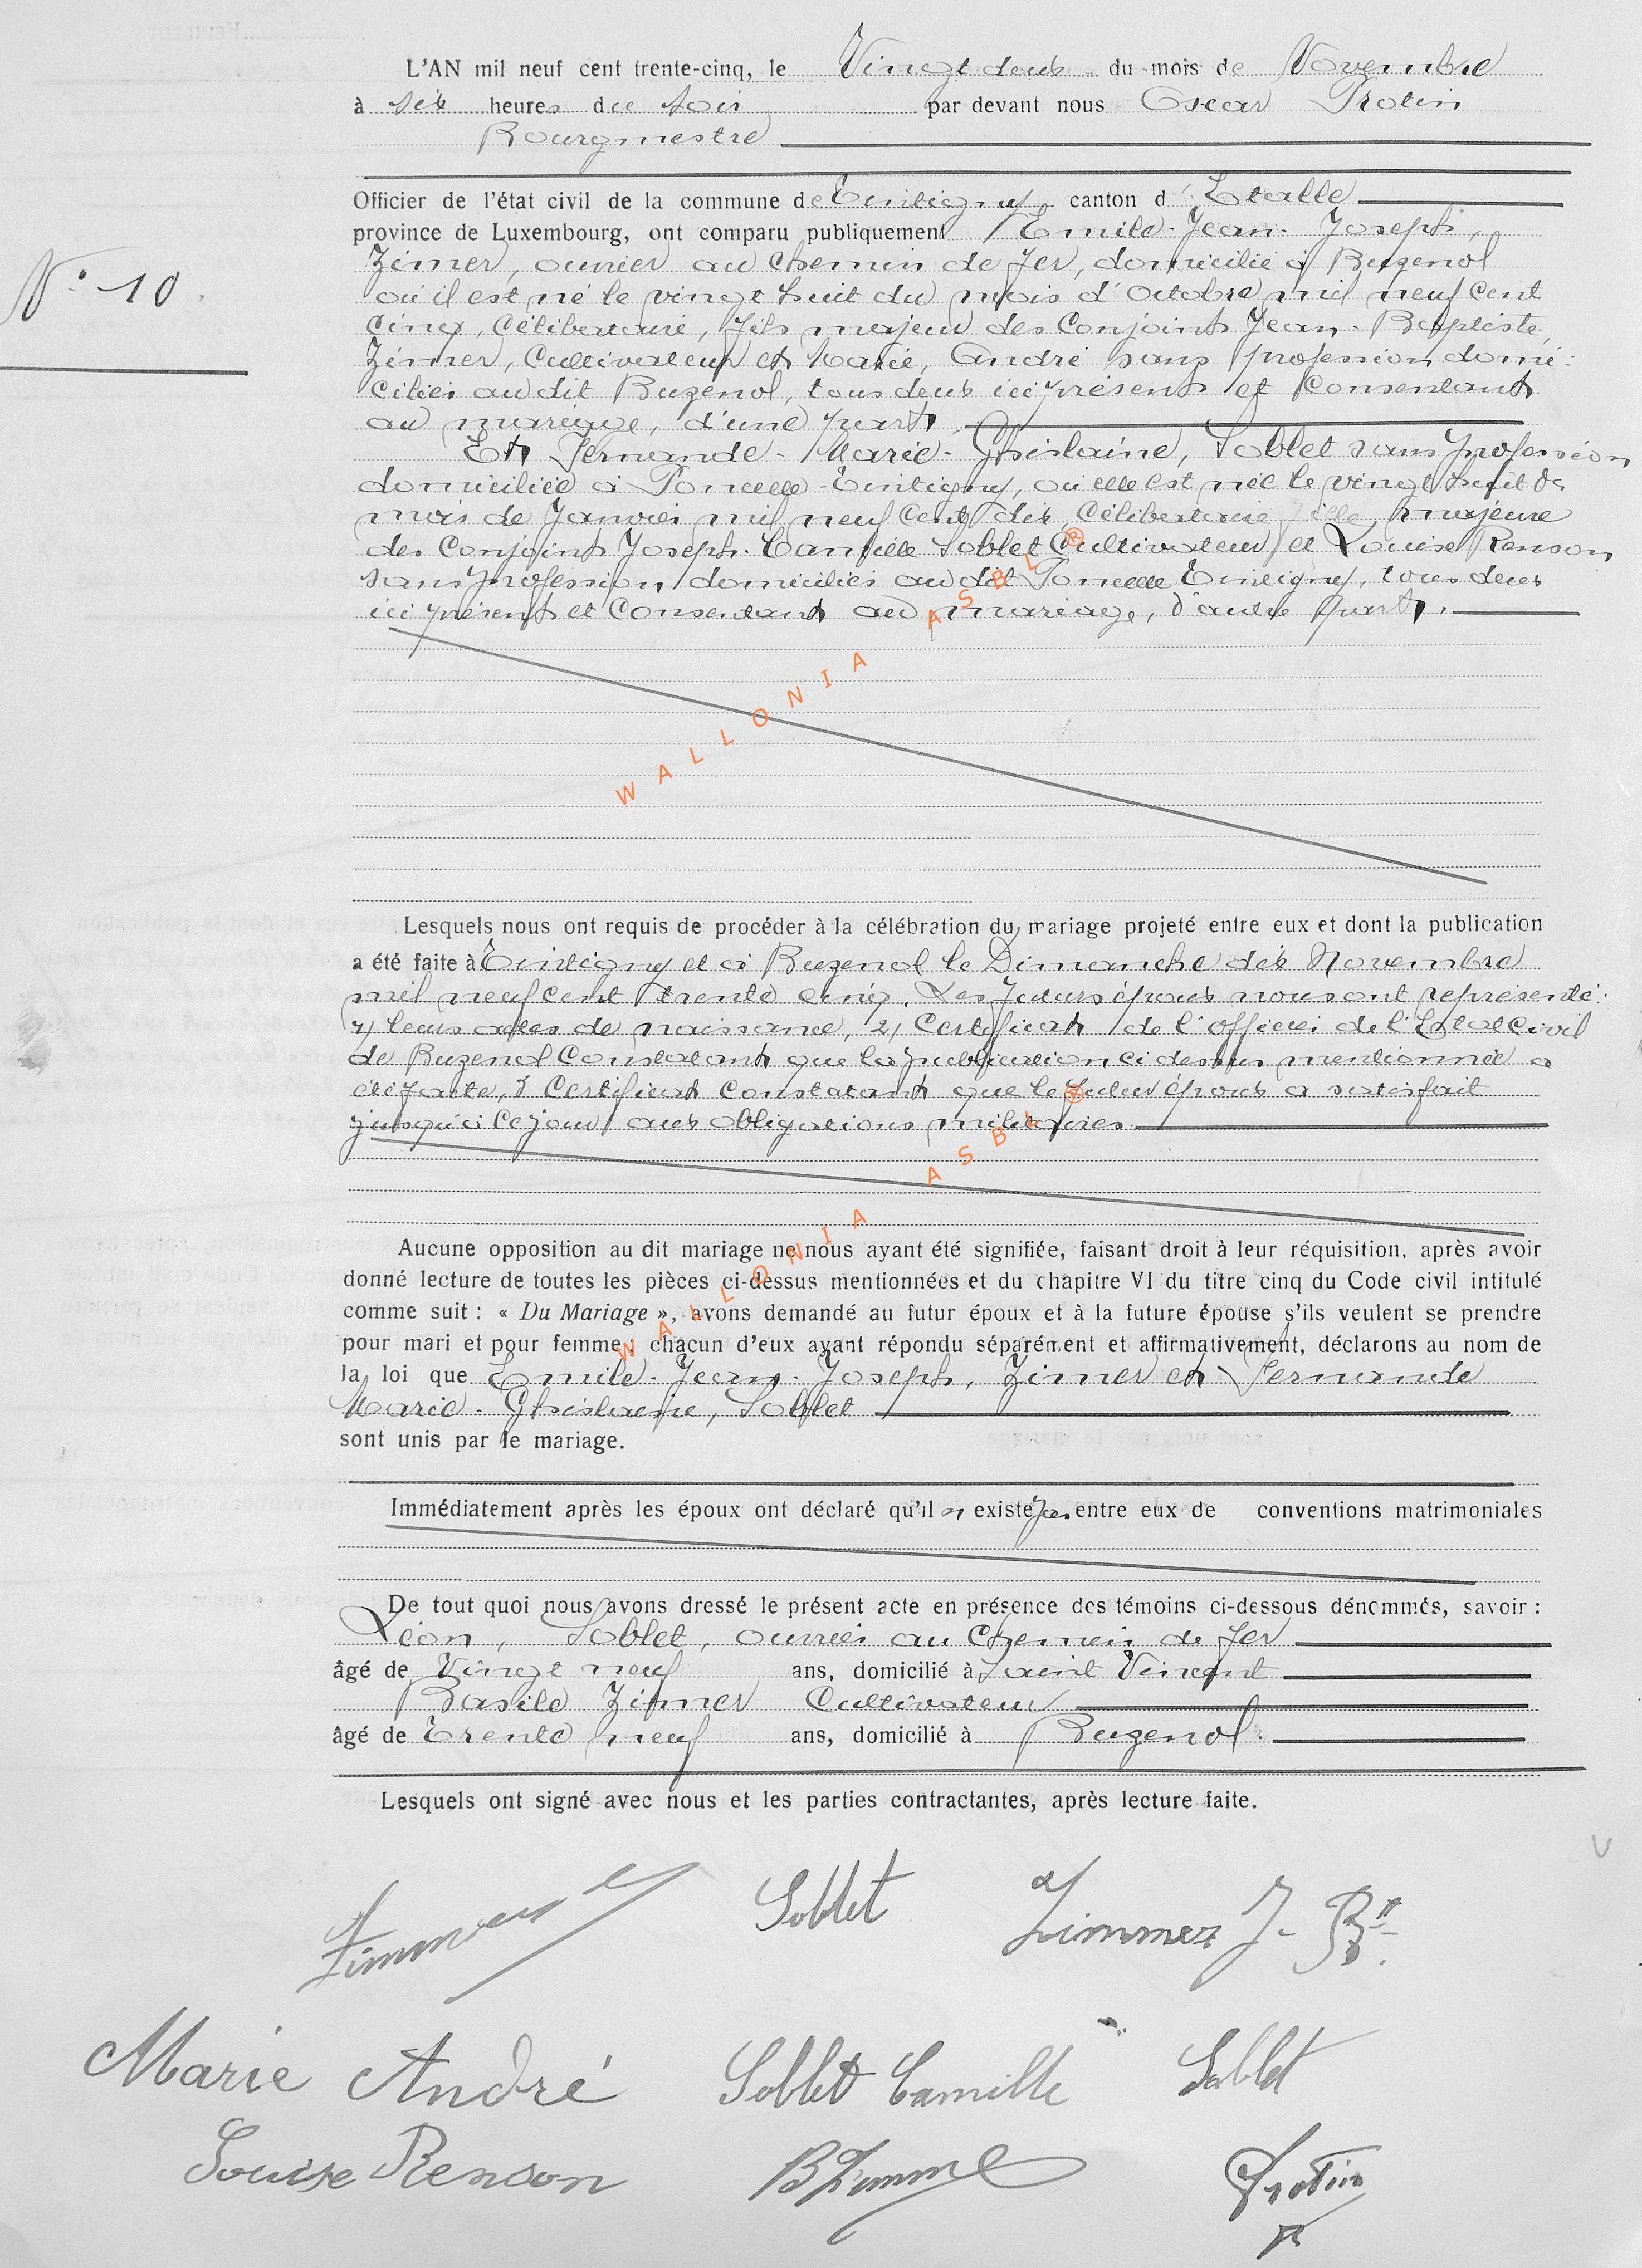 L'AN mil neuf cent trente-cinq, le Vingt deux du mois de Novembre
à six heures du soir par devant nous Oscar Protin
Bourgmestre
Officier de l'état civil de la commune de Tintigny canton d'Etalle
province de Luxembourg, ont comparu publiquement Emile-Jean-Joseph,
N° 10.
Zimer, ouvrier au chemin de fer, domicilié à Buzenol
où il est né le vingt huit du mois d'Octobre mil neuf cent
cinq, Célibataire, fils majeur des Conjoints Jean-Baptiste,
Zimer, Cultivateur et Marie, André sans profession domi-
ciliés au dit Buzenol, tous deux ici présents et Consentants
au mariage, d'une part.
Et Fernande-Marie-Ghislaine, Soblet sans profession
domiciliée à Poncelle-Tintigny, où elle est née le vingt huit du
mois de Janvier mil neuf Cent dix, Célibataire fille, majeure
des Conjoints Joseph-Camille Soblet Cultivateur et Louise Renson
sans profession domiciliés au dit Poncelle Tintigny, tous deux
ici présents et Consentants au mariage, d'autre part.
WALLONIA ASBL ®
Lesquels nous ont requis de procéder à la célébration du mariage projeté entre eux et dont la publication
a été faite à Tintigny et à Buzenol le Dimanche dix Novembre
mil neuf cent trente cinq. Les futurs époux nous ont représenté:
1) leurs actes de naissance, 2) Certificat de l'officier de l'Etat Civil
de Buzenol Constatant que la publication ci dessus mentionnée a
été faite, 3 Certificat Constatant que le futur époux a satisfait
jusqu'à ce jour aux obligations militaires.
WALLONIA ASBL ®
Aucune opposition au dit mariage ne nous ayant été signifiée, faisant droit à leur réquisition, après avoir
donné lecture de toutes les pièces ci-dessus mentionnées et du chapitre VI du titre cinq du Code civil intitulé
comme suit : « Du Mariage », avons demandé au futur époux et à la future épouse s'ils veulent se prendre
pour mari et pour femme ; chacun d'eux ayant répondu séparément et affirmativement, déclarons au nom de
la loi que Emile-Jean-Joseph, Zimer et Fernande
Marie-Ghislaine, Soblet
sont unis par le mariage.
Immédiatement après les époux ont déclaré qu'il n existe pas entre eux de conventions matrimoniales
De tout quoi nous avons dressé le présent acte en présence des témoins ci-dessous dénommés, savoir :
Léon, Soblet, ouvrier au chemin de fer
âgé de Vingt neuf ans, domicilié à Saint Vincent
Basile Zimer Cultivateur
âgé de Trente neuf ans, domicilié à Buzenol.
Lesquels ont signé avec nous et les parties contractantes, après lecture faite.
Zimmer Soblet Zimmer J-Bte
Marie André Soblet Camille Soblet
Louise Renson BZimmer Protin